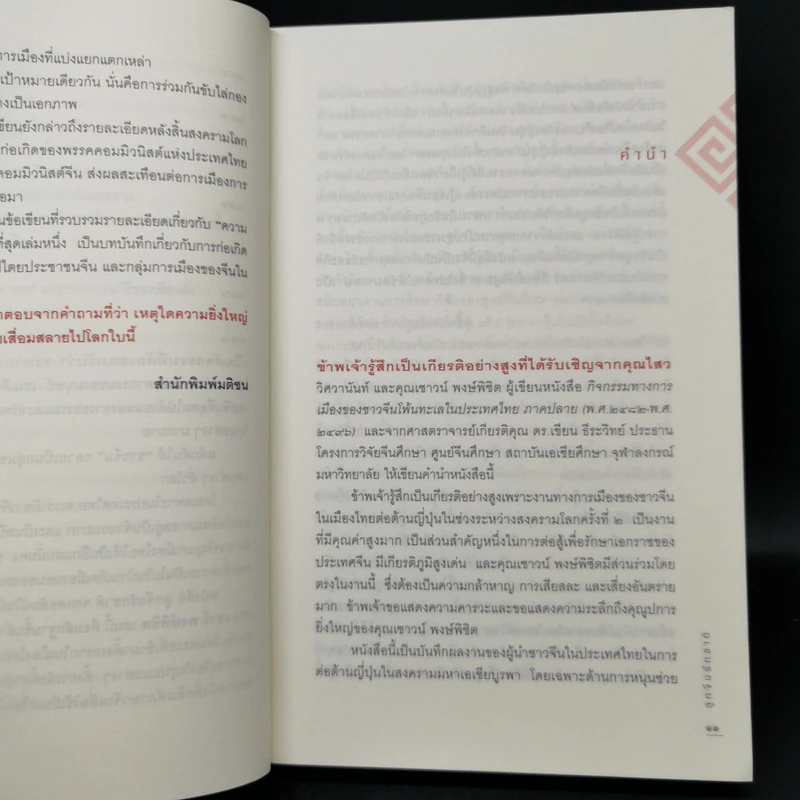 การเมืองที่แบ่งแยกแตกเหล่า
เป้าหมายเดียวกัน นั่นคือการร่วมกันขับไล่กอง
างเป็นเอกภาพ
เขียนยังกล่าวถึงรายละเอียดหลังสิ้นสงครามโลก
ก่อเกิดของพรรคคอมมิวนิสต์แห่งประเทศไทย
คอมมิวนิสต์จีน ส่งผลสะเทือนต่อการเมืองการ
อมา
นข้อเขียนที่รวบรวมรายละเอียดเกี่ยวกับ “ความ
ที่สุดเล่มหนึ่ง เป็นบทบันทึกเกี่ยวกับการก่อเกิด
ปไตยประชาชนจีน และกลุ่มการเมืองของจีนใน
าตอบจากคำถามที่ว่า เหตุใดความยิ่งใหญ่
เสื่อมสลายไปโลกใบนี้
สำนักพิมพ์มติชน
คำนำ
ข้าพเจ้ารู้สึกเป็นเกียรติอย่างสูงที่ได้รับเชิญจากคุณไสว
วิศวานันท์ และคุณเชาวน์ พงษ์พิชิต ผู้เขียนหนังสือ กิจกรรมทางการ
เมืองของชาวจีนโพ้นทะเลในประเทศไทย ภาคปลาย (พ.ศ.๒๔๘๒-พ.ศ.
๒๔๙๖) และจากศาสตราจารย์เกียรติคุณ ดร.เขียน ธีระวิทย์ ประธาน
โครงการวิจัยจีนศึกษา ศูนย์จีนศึกษา สถาบันเอเชียศึกษา จุฬาลงกรณ์
มหาวิทยาลัย ให้เขียนคำนำหนังสือนี้
ข้าพเจ้ารู้สึกเป็นเกียรติอย่างสูงเพราะงานทางการเมืองของชาวจีน
ในเมืองไทยต่อต้านญี่ปุ่นในช่วงระหว่างสงครามโลกครั้งที่ ๒ เป็นงาน
ที่มีคุณค่าสูงมาก เป็นส่วนสำคัญหนึ่งในการต่อสู้เพื่อรักษาเอกราชของ
ประเทศจีน มีเกียรติภูมิสูงเด่น และคุณเชาวน์ พงษ์พิชิตมีส่วนร่วมโดย
ตรงในงานนี้ ซึ่งต้องเป็นความกล้าหาญ การเสียสละ และเสี่ยงอันตราย
มาก ข้าพเจ้าขอแสดงความคารวะและขอแสดงความระลึกถึงคุณูปการ
ยิ่งใหญ่ของคุณเชาวน์ พงษ์พิชิต
หนังสือนี้เป็นบันทึกผลงานของผู้นำชาวจีนในประเทศไทยในการ
ต่อต้านญี่ปุ่นในสงครามมหาเอเชียบูรพา โดยเฉพาะด้านการหนุนช่วย
ลูกจีนรักชาติ
๑๑